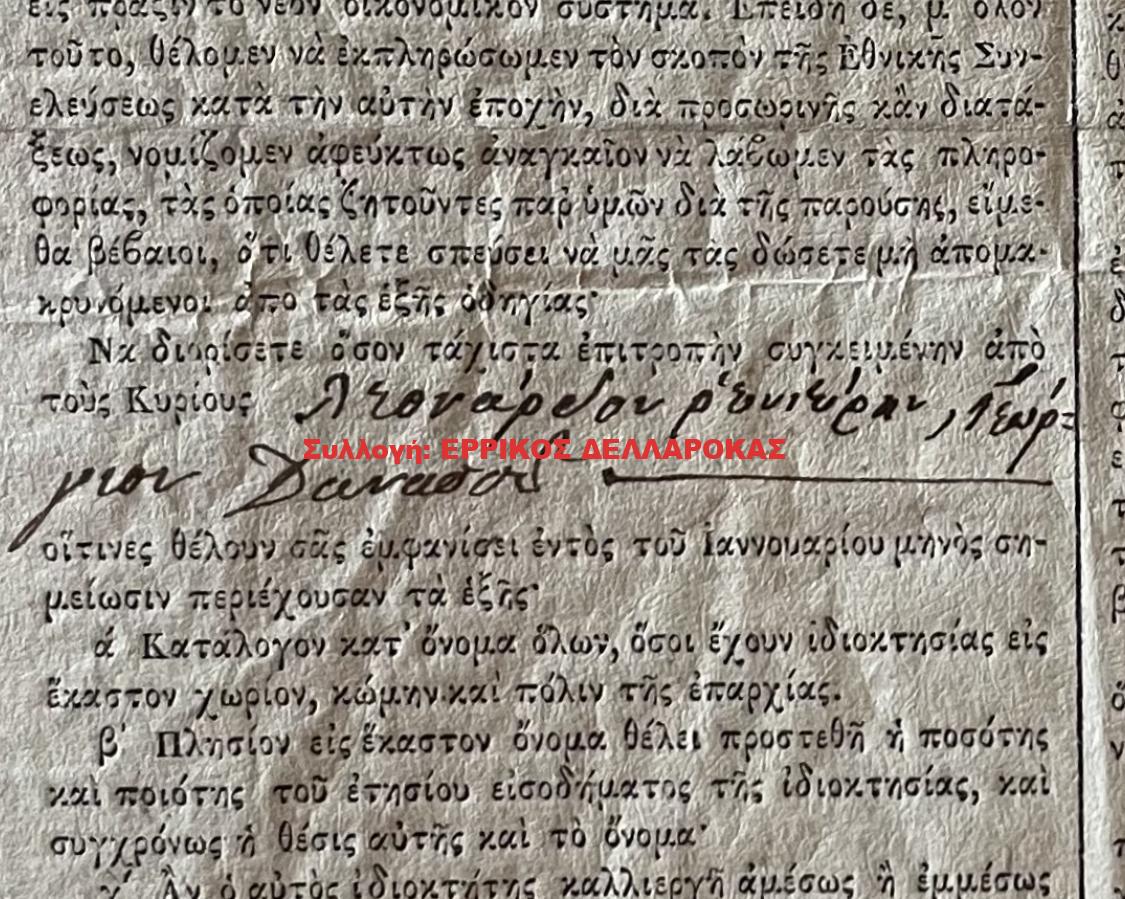 εἰς πρᾶξιν τὸ νέον οἰκονομικὸν σύστημα. Ἐπειδὴ δὲ, μ' ὅλον
τοῦτο, θέλομεν νὰ ἐκπληρώσωμεν τὸν σκοπὸν τῆς Ἐθνικῆς Συν-
ελεύσεως κατὰ τὴν αὐτὴν ἐποχὴν, διὰ προσωρινῆς κᾂν διατά-
ξεως, νομίζομεν ἀφεύκτως ἀναγκαῖον νὰ λάβωμεν τὰς πληρο-
φορίας, τὰς ὁποίας ζητοῦντες παρ' ὑμῶν διὰ τῆς παρούσης, εἴμε-
θα βέβαιοι, ὅτι θέλετε σπεύσει νὰ μᾶς τὰς δώσετε μὴ ἀπομα-
κρυνόμενοι ἀπὸ τὰς ἑξῆς ὁδηγίας·
Νὰ διορίσετε ὅσον τάχιστα ἐπιτροπὴν συγκειμένην ἀπὸ
τοὺς Κυρίους Λεονάρδον ῥενιέρην, Γεώρ-
Συλλογή: ΕΡΡΙΚΟΣ ΔΕΛΛΑΡΟΚΑΣ
γιον Δανασσῆ
οἵτινες θέλουν σᾶς ἐμφανίσει ἐντὸς τοῦ Ἰαννουαρίου μηνὸς ση-
μείωσιν περιέχουσαν τὰ ἑξῆς·
ά Κατάλογον κατ' ὄνομα ὅλων, ὅσοι ἔχουν ἰδιοκτησίας εἰς
ἕκαστον χωρίον, κώμην καὶ πόλιν τῆς ἐπαρχίας.
β' Πλησίον εἰς ἕκαστον ὄνομα θέλει προστεθῆ ἡ ποσότης
καὶ ποιότης τοῦ ἐτησίου εἰσοδήματος τῆς ἰδιοκτησίας, καὶ
συγχρόνως ἡ θέσις αὐτῆς καὶ τὸ ὄνομα·
γ' Ἂν ὁ αὐτὸς ἰδιοκτήτης καλλιεργῇ ἀμέσως ἢ ἐμμέσως